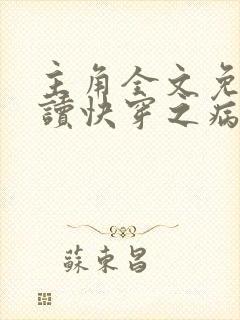 主角全文免
讀快穿之病
蘇東昌